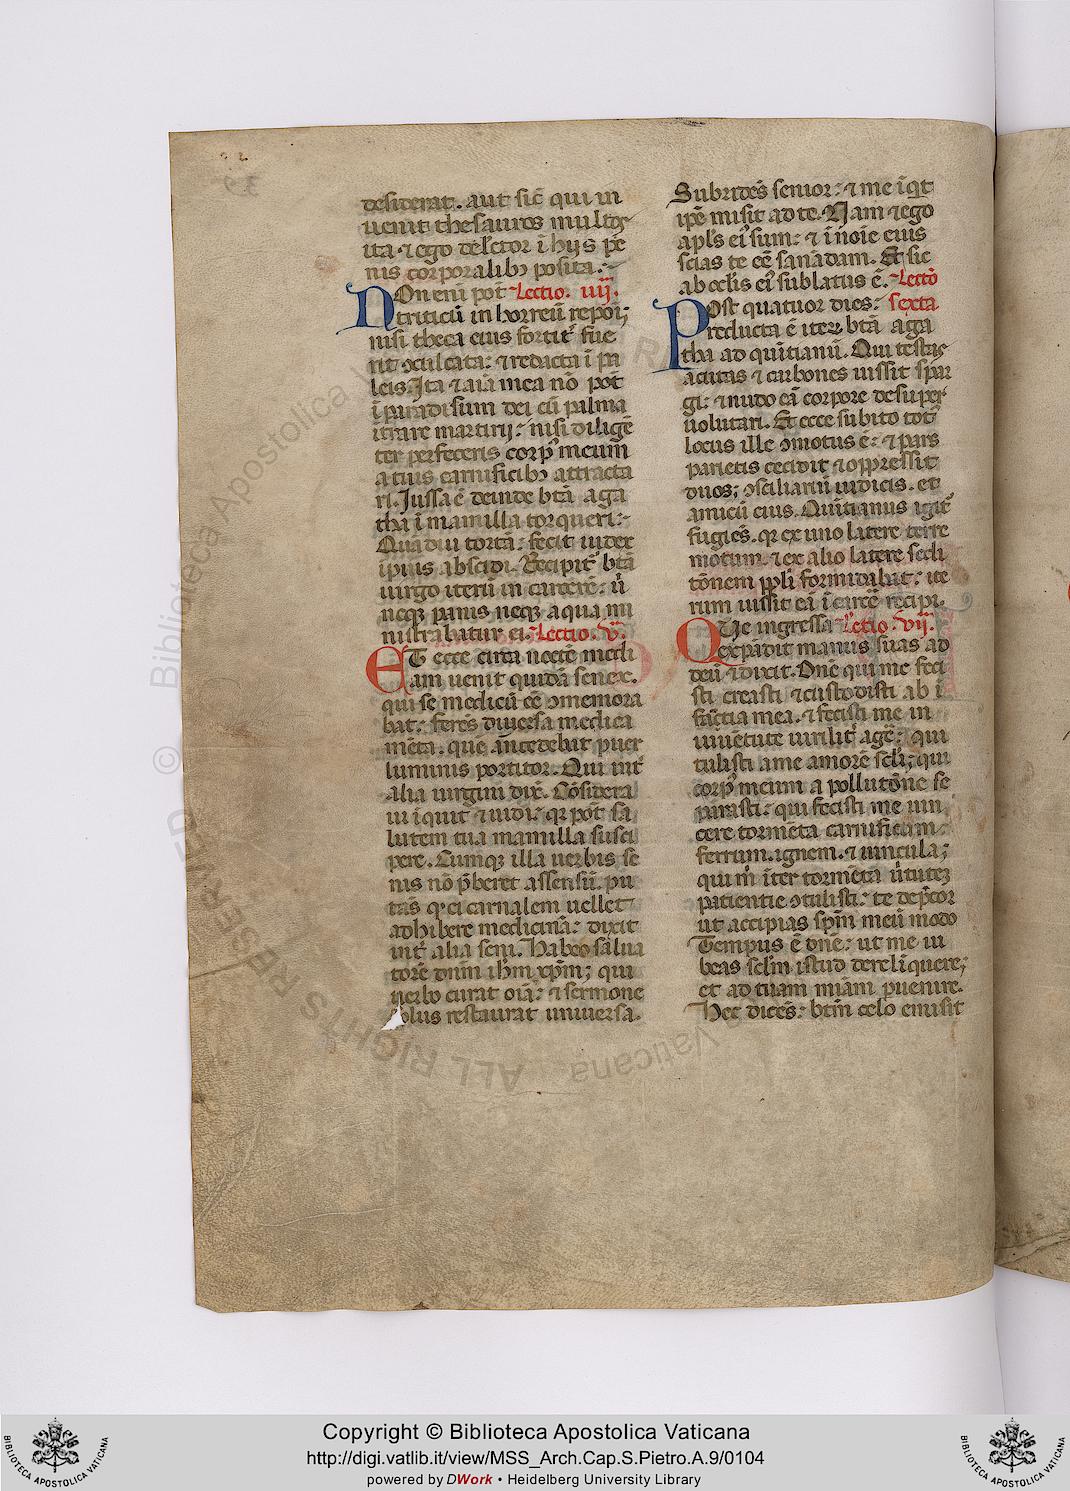 desiderat. aut sic̄ qui in
uenit thesauros multos
ita ⁊ ego delector ī hijs pe
nis corporalibꝫ posita.
NOn enī pot̄ Lectio. iiij.
triticū in horreū reponi;
nisi theca eius fortit̄ fue
rit ɔculcata: ⁊ redacta ī pa
leis. Ita ⁊ aīa mea nō pot̄
ī paradisum dei cū palma
ītrare martirij: nisi diligē
ter perfeceris corpꝰ meum
a tuis carnificibꝫ attracta
ri. Jussa ē deinde btā aga
tha ī mamilla torqueri:
Quā diu tortā: fecit iudex
ipius abscidi. Recipit̄ btā
uirgo iterū in carcerē: ut
neqꝫ panis neqꝫ aqua mi
nistrabatur ei. Lectio. v̄.
ET ecce circa noctē medi
am uenit quidā senex.
qui se medicū eē ɔmemora
bat: ferēs diuersa medica
mēta. que āntecedebat puer
luminis portitor. Qui int̄
alia uirgini dix̄. Cōsidera
ui īquit ⁊ uidi: qꝛ pot̄ sa
lutem tua mamilla susci
pere. Cumqꝫ illa uerbis se
nis nō p̄beret assensū. pu
tās qꝫ ei carnalem uellet
adhibere medicinā: dixit
int̄ alia seni. Habeo salua
torē dnm ihm xpm; qui
uerbo curat oīa: ⁊ sermone
solus restaurat uniuersa.
Subridēs senior: ⁊ me īqt
ipē misit ad te. Nam ⁊ ego
apl's eiꝰ sum: ⁊ ī noīe eius
scias te eē sanādam. Et sic
ab oc̄lis eiꝰ sublatus ē. Lectō
POst quatuor dies: sexta
reducta ē iterū btā aga
tha ad quintianū. Qui testas
acutas ⁊ carbones iussit spar
gi: ⁊ nudo eā corpore desuper
uolutari. Et ecce subito tot̄
locus ille ɔmotus ē: ⁊ pars
parietis cecidit ⁊ oppressit
duos; ɔsciliariū iudicis. et
amicū eius. Quintianus igit̄
fugiēs. qꝛ ex uno latere terre
motum. ⁊ ex alio latere sedi
tōnem ppl'i formidabat: ite
rum iussit eā ī carcē recipi.
QUe ingressa Lectio. vij.
expādit manus suas ad
deū ⁊ dixit. Dnē qui me feci
sti creasti ⁊ custodisti ab ī
fāntia mea. ⁊ fecisti me in
iuuētute uirilit̄ agē: qui
tulisti a me amorē sc̄li; qui
corpꝰ meum a pollutōne se
parasti: qui fecisti me uin
cere tormēta carnificum
ferrum. ignem. ⁊ uincula;
qui m̄ īter tormēta uirtutēꝫ
patientie ɔtulisti: te dep̄cor
ut accipias spm̄ meū modo
Tempus ē dnē: ut me iu
beas sclm istud derelīquere;
et ad tuam miām peruenire.
Hec dicēs: btm̄ celo emisit
Copyright © Biblioteca Apostolica Vaticana
http://digi.vatlib.it/view/MSS_Arch.Cap.S.Pietro.A.9/0104
powered by DWork • Heidelberg University Library
BIBLIOTECA APOSTOLICA VATICANA
BIBLIOTECA APOSTOLICA VATICANA